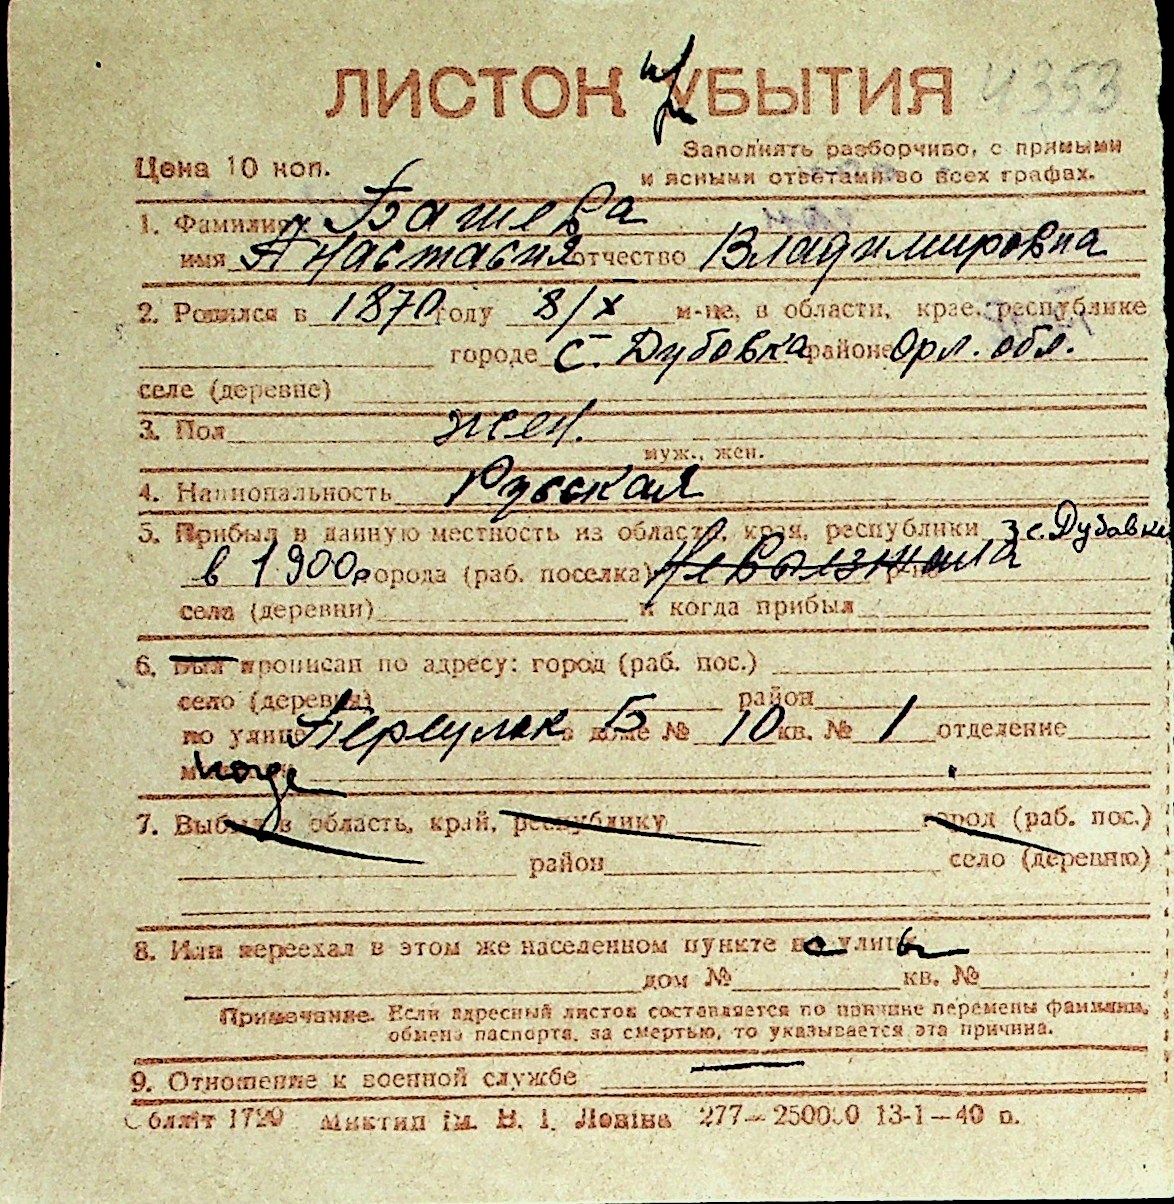 ЛИСТОК при УБЫТИЯ 4353
Цена 10 коп.
Заполнять разборчиво, с прямыми
и ясными ответами во всех графах.
1. Фамилия Башева
имя Анастасия отчество Владимировна
2. Родился в 1870 году 8/X м-це, в области, крае, республике
городе с. Дубовка районе Орл. обл.
селе (деревне)
3. Пол жен.
муж., жен.
4. Национальность Русская
5. Прибыл в данную местность из области, края, республики з с. Дубовки
в 1900 г города (раб. поселка) Не выезжала
села (деревни) и когда прибыл
6. Был прописан по адресу: город (раб. пос.)
село (деревня) район
по улице Переулок Б в доме № 10 кв. № 1 отделение
7. Выбыл в область, край, республику город (раб. пос.)
район село (деревню)
8. Или переехал в этом же населенном пункте с улицы
дом № кв. №
Примечание. Если адресный листок составляется по причине перемены фамилии,
обмена паспорта, за смертью, то указывается эта причина.
9. Отношение к военной службе —
Обллiт 1720 Миктип iм. В. I. Ленiна 277—250000 13-1—40 р.